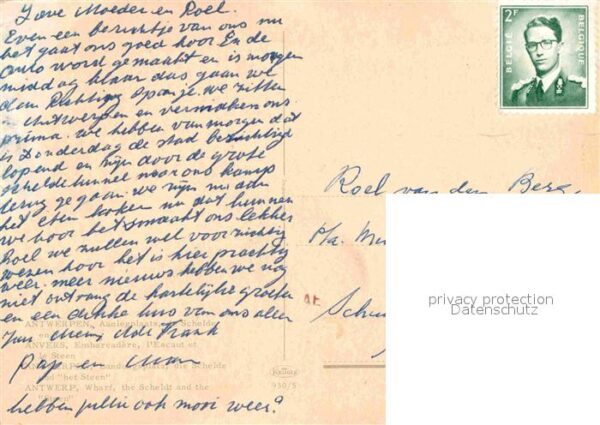 Lieve Moeder en Roel.
Even een berichtje van ons nu
het gaat ons goed hoor En de
auto word gemaakt en is morgen
middag klaar dus gaan we
dan Richting Spanje. we zitten
in Antwerpen en vermaken ons
prima. we hebben van morgen dat
is Donderdag de stad bezichtigd
lopend en zijn door de grote
scheldetunnel naar ons kamp
terug ge gaan. we zijn nu aan
het eten koken nu dat kunnen
we hoor het smaakt ons lekker
Roel we zullen wel voorzichtig
wezen hoor het is hier prachtig
weer. meer nieuws hebben we nog
niet ontvang de hartelijke groeten
en een dikke kus van ons allen
Jun
Frank
Pap en Mam
hebben jullie ook mooi weer?
ANTWERPEN, Aanlegplaats, de Schelde
ANVERS, Embarcadère, l'Escaut et
le Steen
"het Steen"
ANTWERP, Wharf, the Scheldt and the
"Steen"
930/5
2F
BELGIË
BELGIQUE
Roel van den Berg
P/a.
privacy protection
Datenschutz